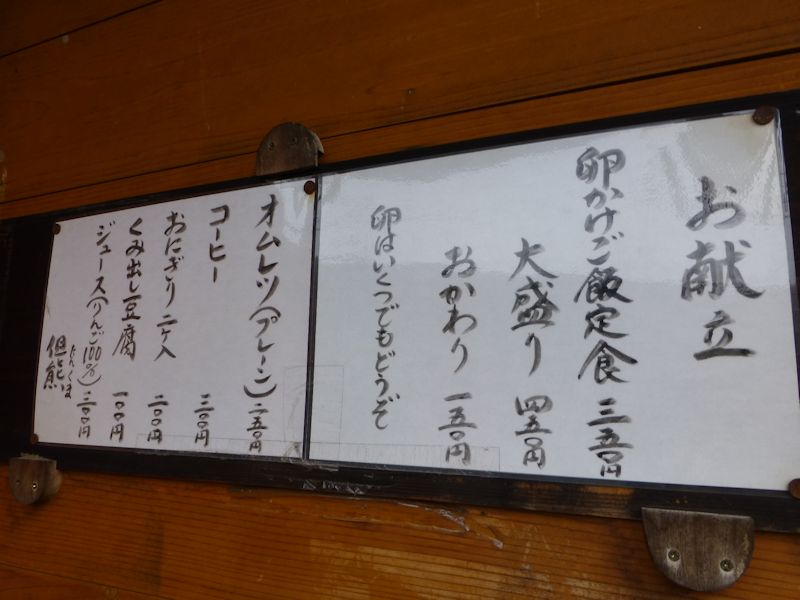 お献立
卵かけご飯定食 三五〇円
大盛り 四五〇円
おかわり 一五〇円
卵はいくつでもどうぞ
オムレツ(プレーン) 二五〇円
コーヒー 二〇〇円
おにぎり 二ケ入 二〇〇円
くみ出し豆腐 一〇〇円
ジュース(りんご100%) 二〇〇円
但熊
たんくま